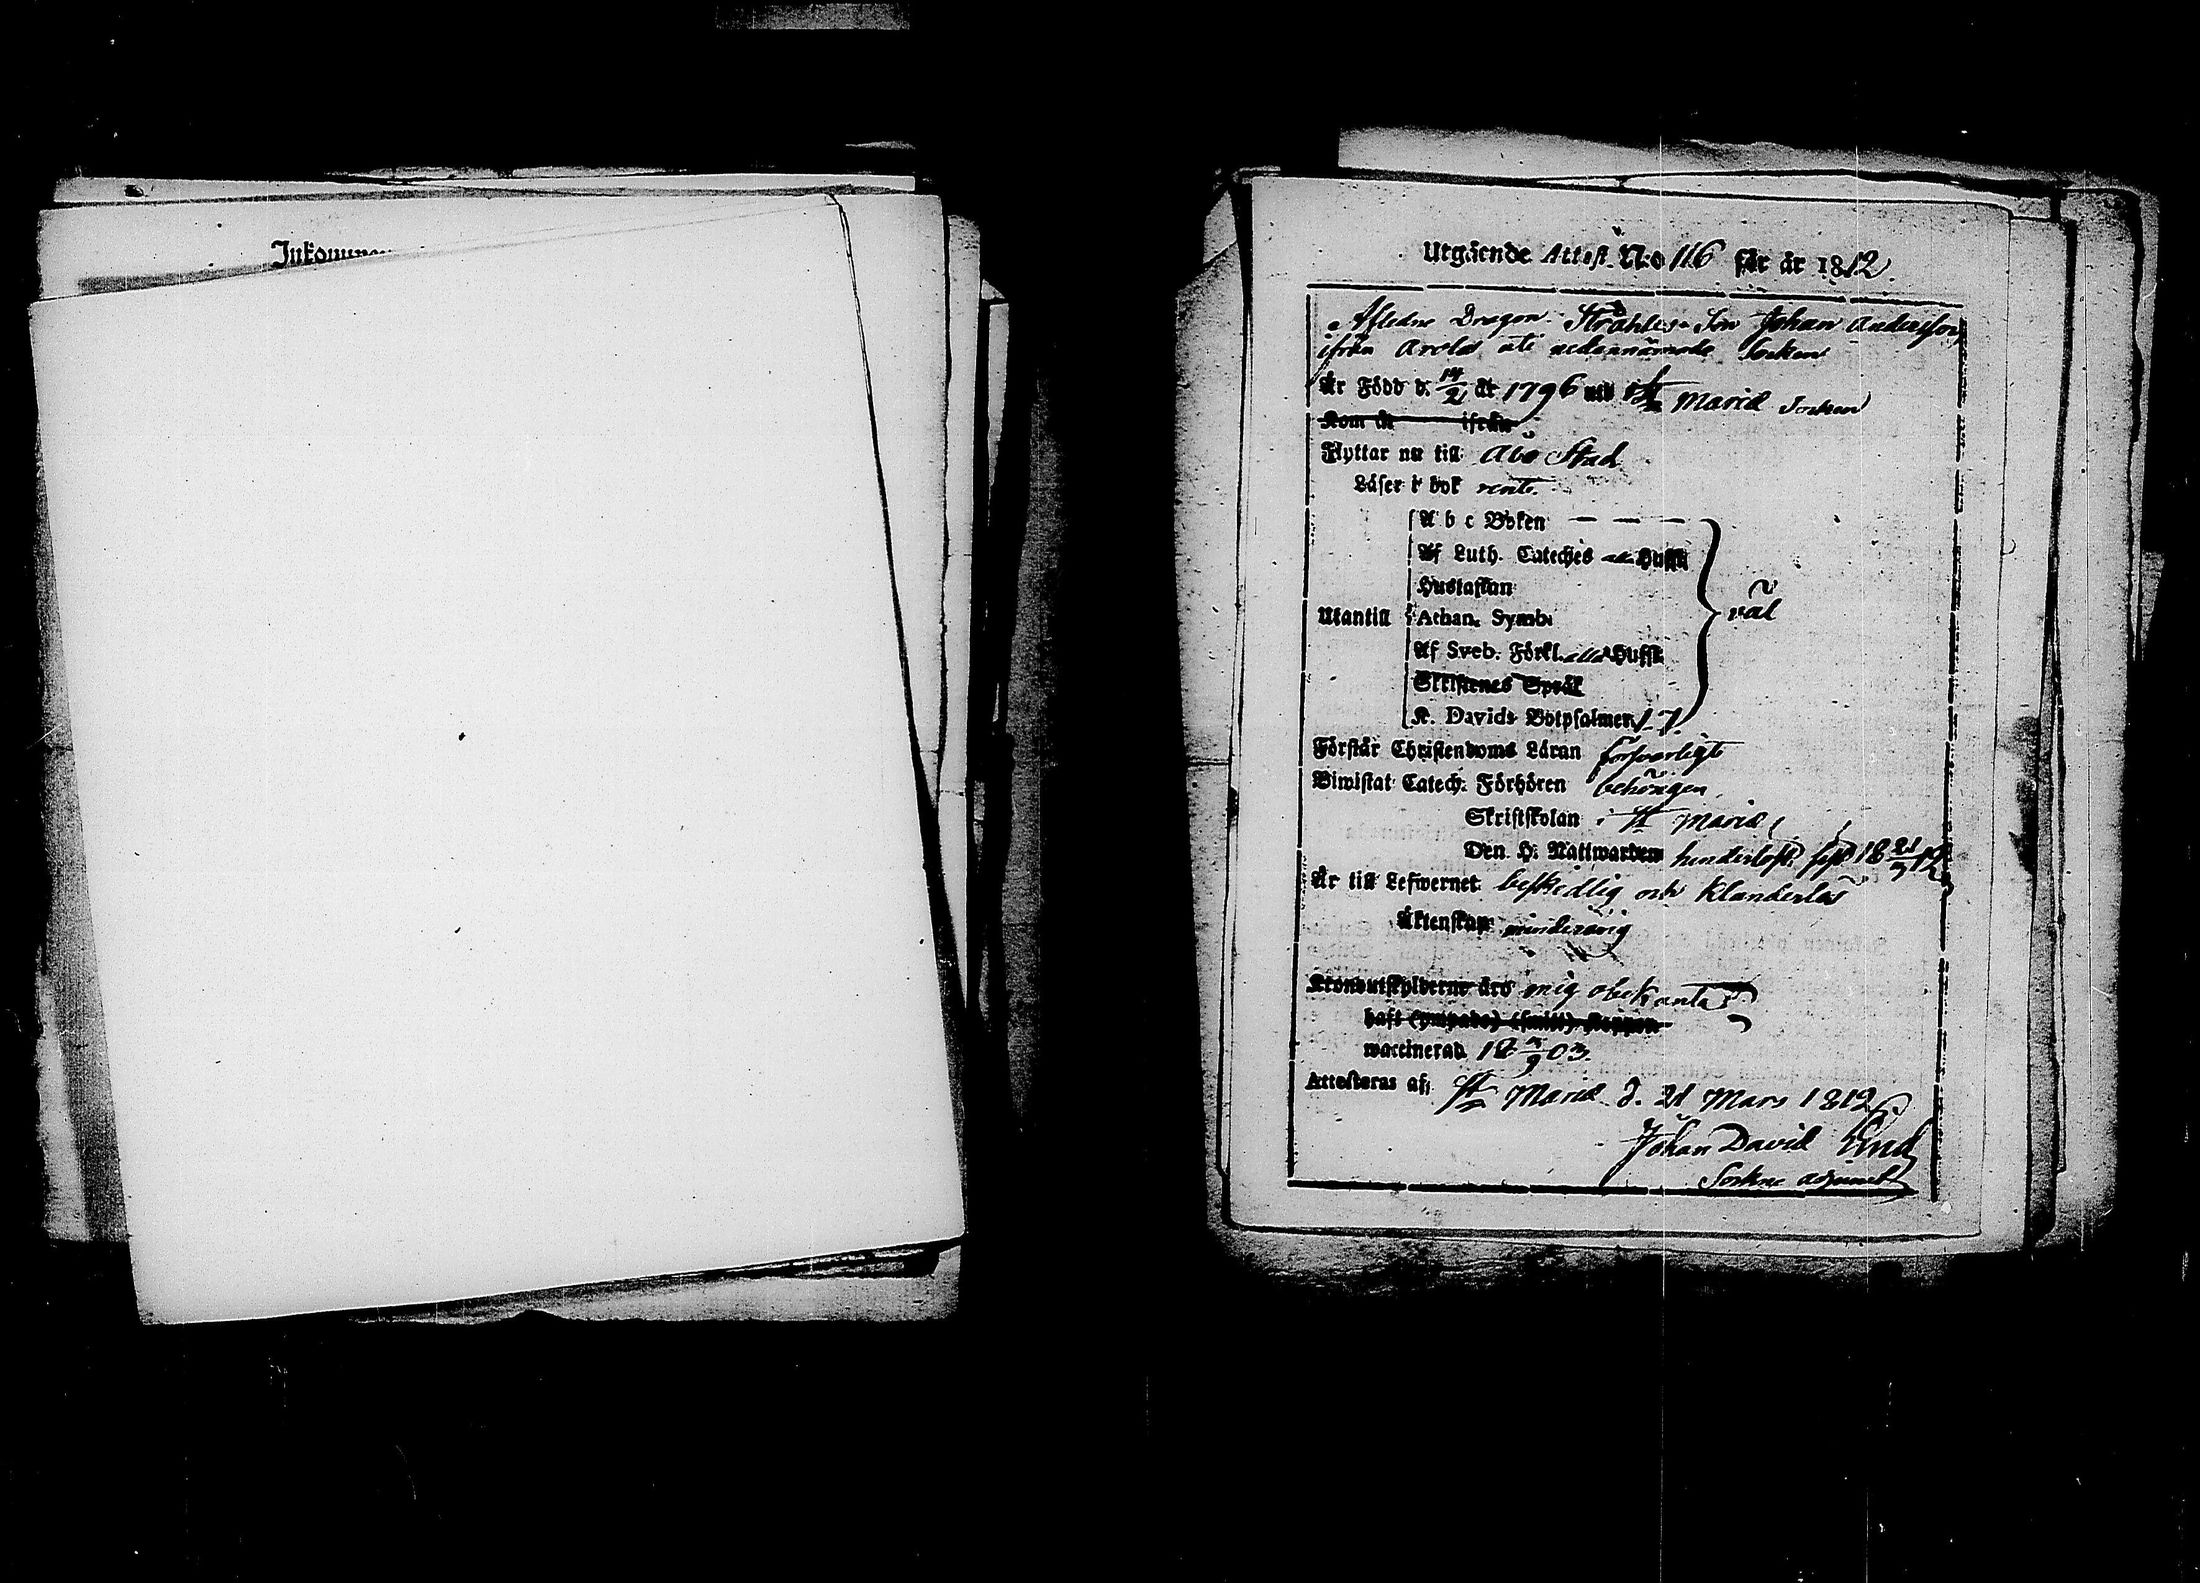 Inkommen
Utgående Attest. N:o 116 för år 1812
Afledne Dragon Stråhles Son Johan Andersson
ifrån Arola uti nedannämnde Socken
Är Född d. 14/2 år 1796 uti St Mariæ Socken
Kom år ifrån
Flyttar nu till Åbo Stad
Läser i bok rent.
A b c Boken
Af Luth. Cateches alla Hufst
Hustaflan
Utantill Athan. Symb. väl
Af Sveb. Förkl. alla Hufst.
Skriftenes Språk
K. Davids Botpsalmer 1. 7.
Förstår Christendoms Läran försvarligt
Biwistat Catech. Förhören behörigen
Skriftskolan i St Mariæ
Den H. Nattwarden sist 18 21/3 12
Är till Lefwernet beskedlig och klanderlös
Äktenskap minderårig
Kronoutskylderne äro mig obekanta
haft (ympade) (smitt) koppor
waccinerad 18 3/9 03.
Attesteras af; St Mariæ d. 21 Mars 1812
Johan David Lind
Sockne adjunct